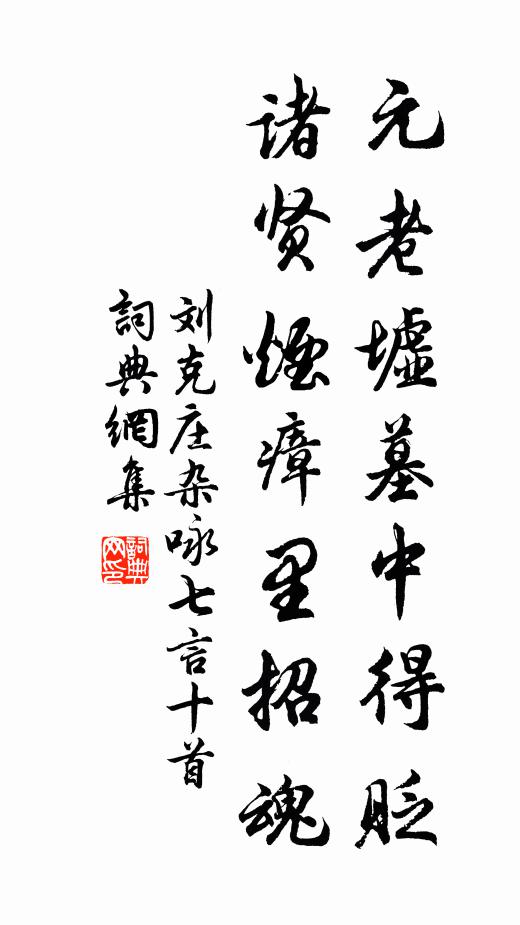 元老墟墓中得貶
诸贤煙瘴里招魂
刘克庄杂咏七言十首
詞典網集
詞典網印